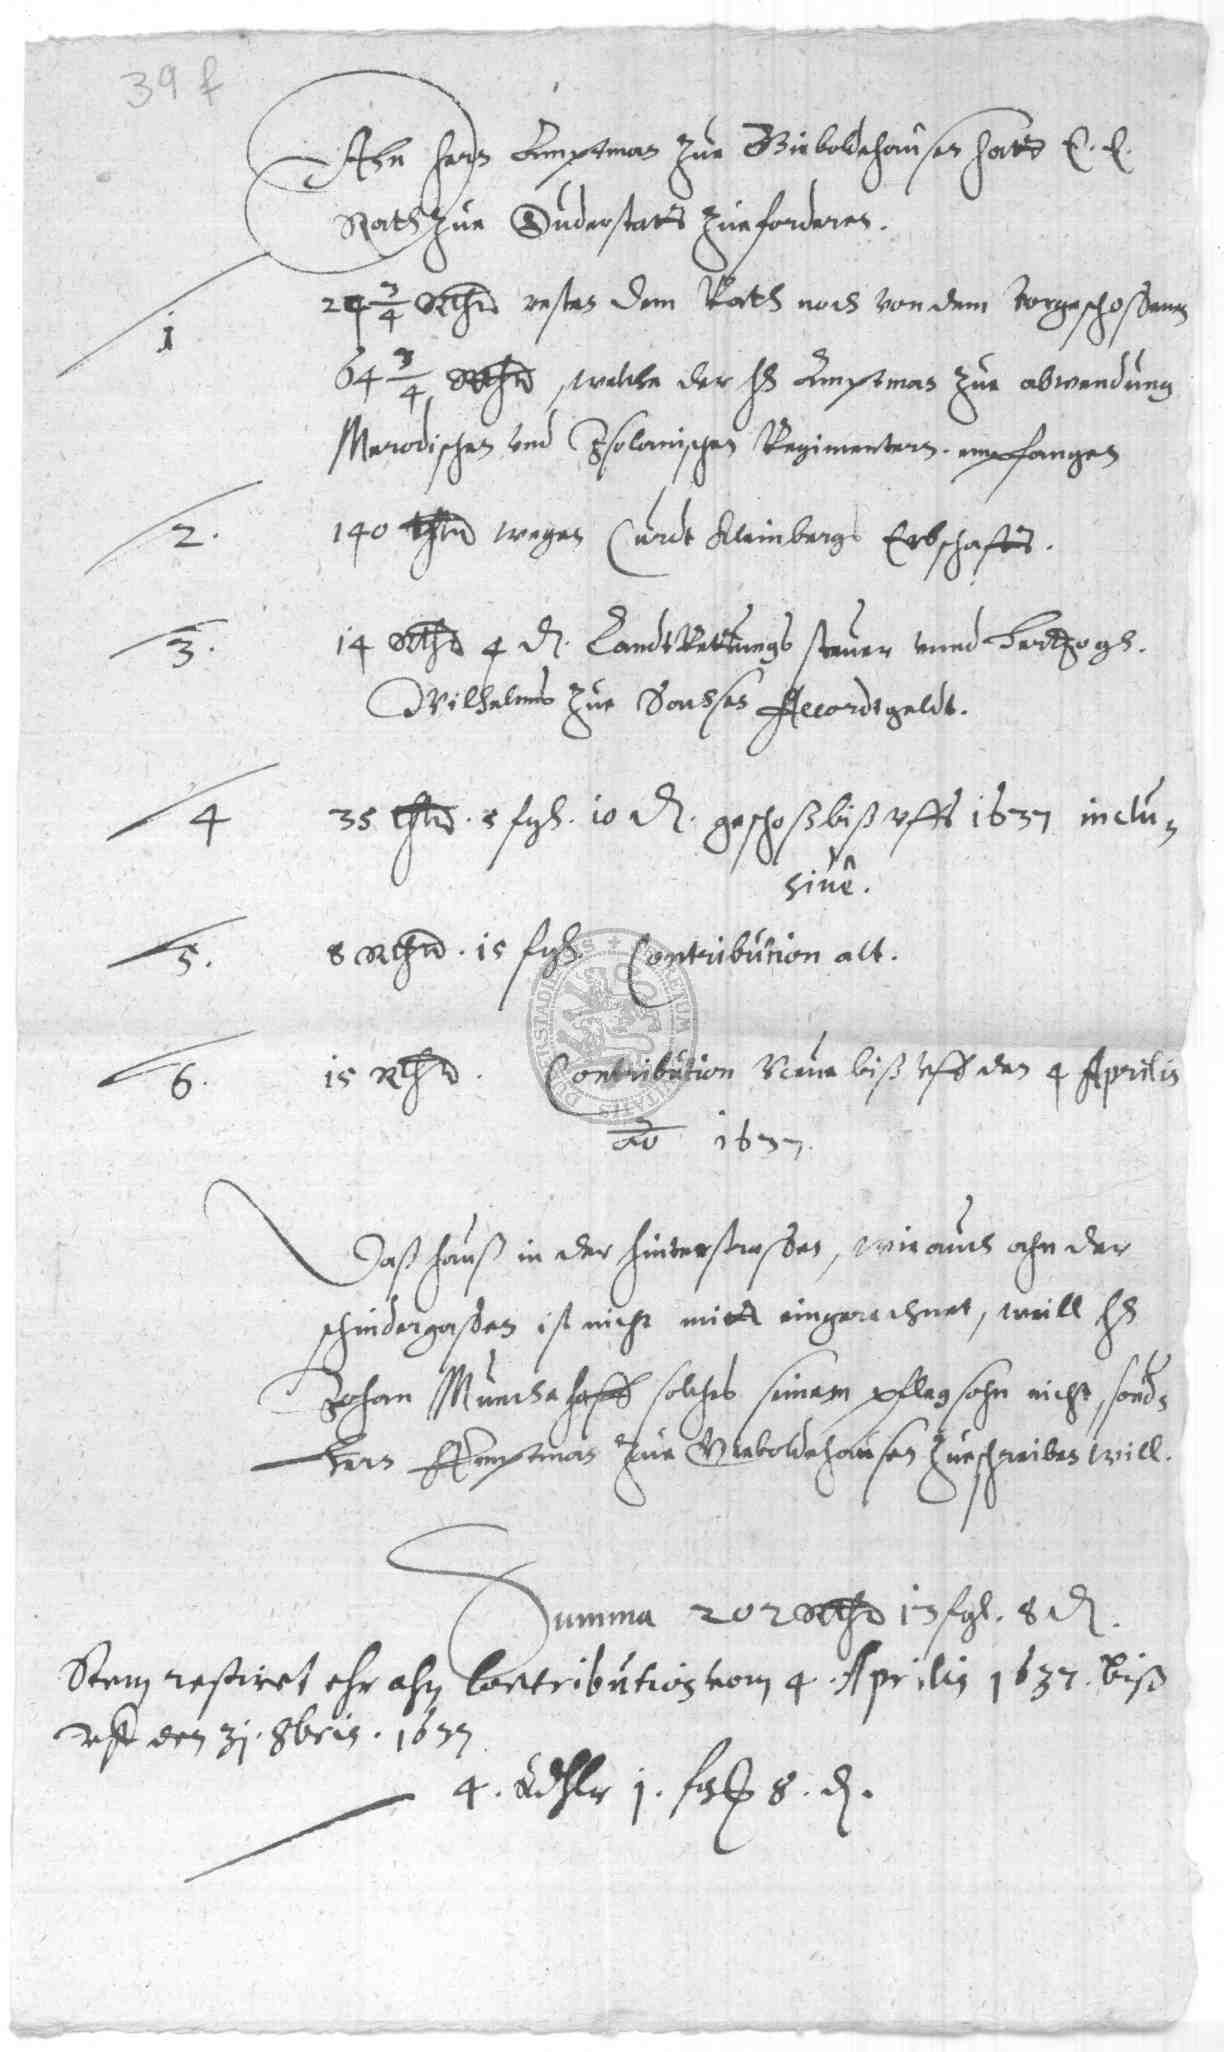 39 f
Ahn Hern Amptman zue Gieboldehausen hatt E. E.
Rath zue Duderstatt zue forderen.
1 24 3/4 Rthlr resten dem Rath noch von dem vorgeschoßenen
64 3/4 Rthlr, welche der H Amptman zue abwendung
Merodischen und Isolanischen Regimentern empfangen
2. 140 thlr wegen Curdt Kleinbergs Erbschafft.
3. 14 Rthlr 4 d. Landt Rettungs steuer unnd Hertzogh.
Wilhelms zue Sachsen Accordtgeldt.
4 35 thlr. 5 fgl. 10 d. geschoß biß uffs 1637 inclu-
sivè.
5. 8 Rthlr. 15 fgl. Contribution alt.
6. 15 Rthlr. Contribution Neue biß uff den 4 Aprilis
ao 1637.
Daß hauß in der hinterstraßen, wie auch ahn der
schindergaßen ist nicht mitt eingerechnet, weill H
Johan solches seinem pflegsohn nicht, sond-
hern Amptman zue Gieboldehausen zueschreiben will.
Summa 202 Rthlr 13 fgl. 8 d.
Item restiret ehr ahn Contribution vom 4. Aprilis 1637. biß
uff den 31. 8bris. 1637
4. Rthlr 1. fgl 8. d.